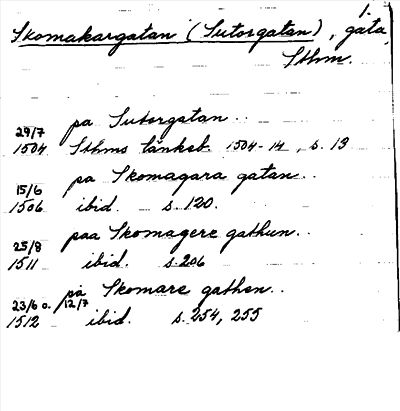 1.
Skomakargatan (Sutorgatan), gata,
Sthm.
pa Sutorgatan..
29/7
1504 Sthms tänkeb. 1504-14, s. 13
pa Skomagara gatan..
15/6
1506 ibid. s. 120.
paa Skomagere gathun..
25/8
1511 ibid. s. 206
pa Skomare gathen..
23/6 o. 12/7
1512 ibid. s. 254, 255